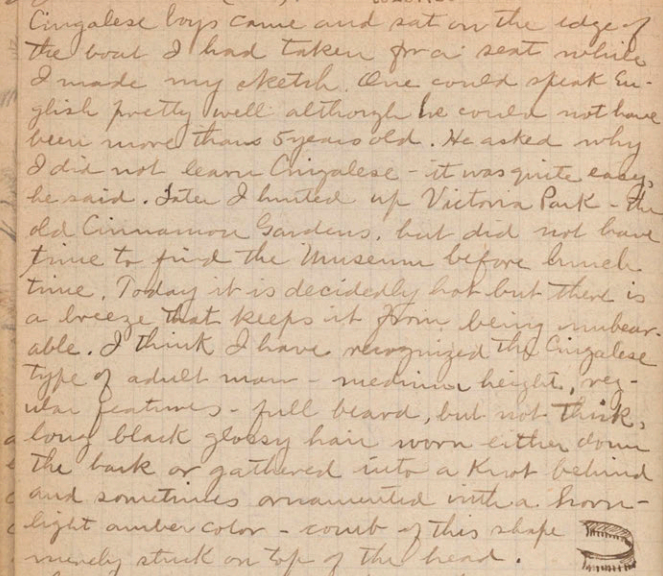 Cingalese boys came and sat on the edge of
the boat I had taken for a seat while
I made my sketch. One could speak En-
glish pretty well although he could not have
been more than 5 years old. He asked why
I did not learn Cingalese - it was quite easy,
he said. Later I hunted up Victoria Park - the
old Cinnamon Gardens, but did not have
time to find the Museum before lunch
time. Today it is decidedly hot but there is
a breeze that keeps it from being unbear-
able. I think I have recognized the Cingalese
type of adult man - medium height, reg-
ular features - full beard, but not thick,
long black glossy hair worn either down
the back or gathered into a knot behind
and sometimes ornamented with a horn -
light amber color - comb of this shape
merely stuck on top of the head.